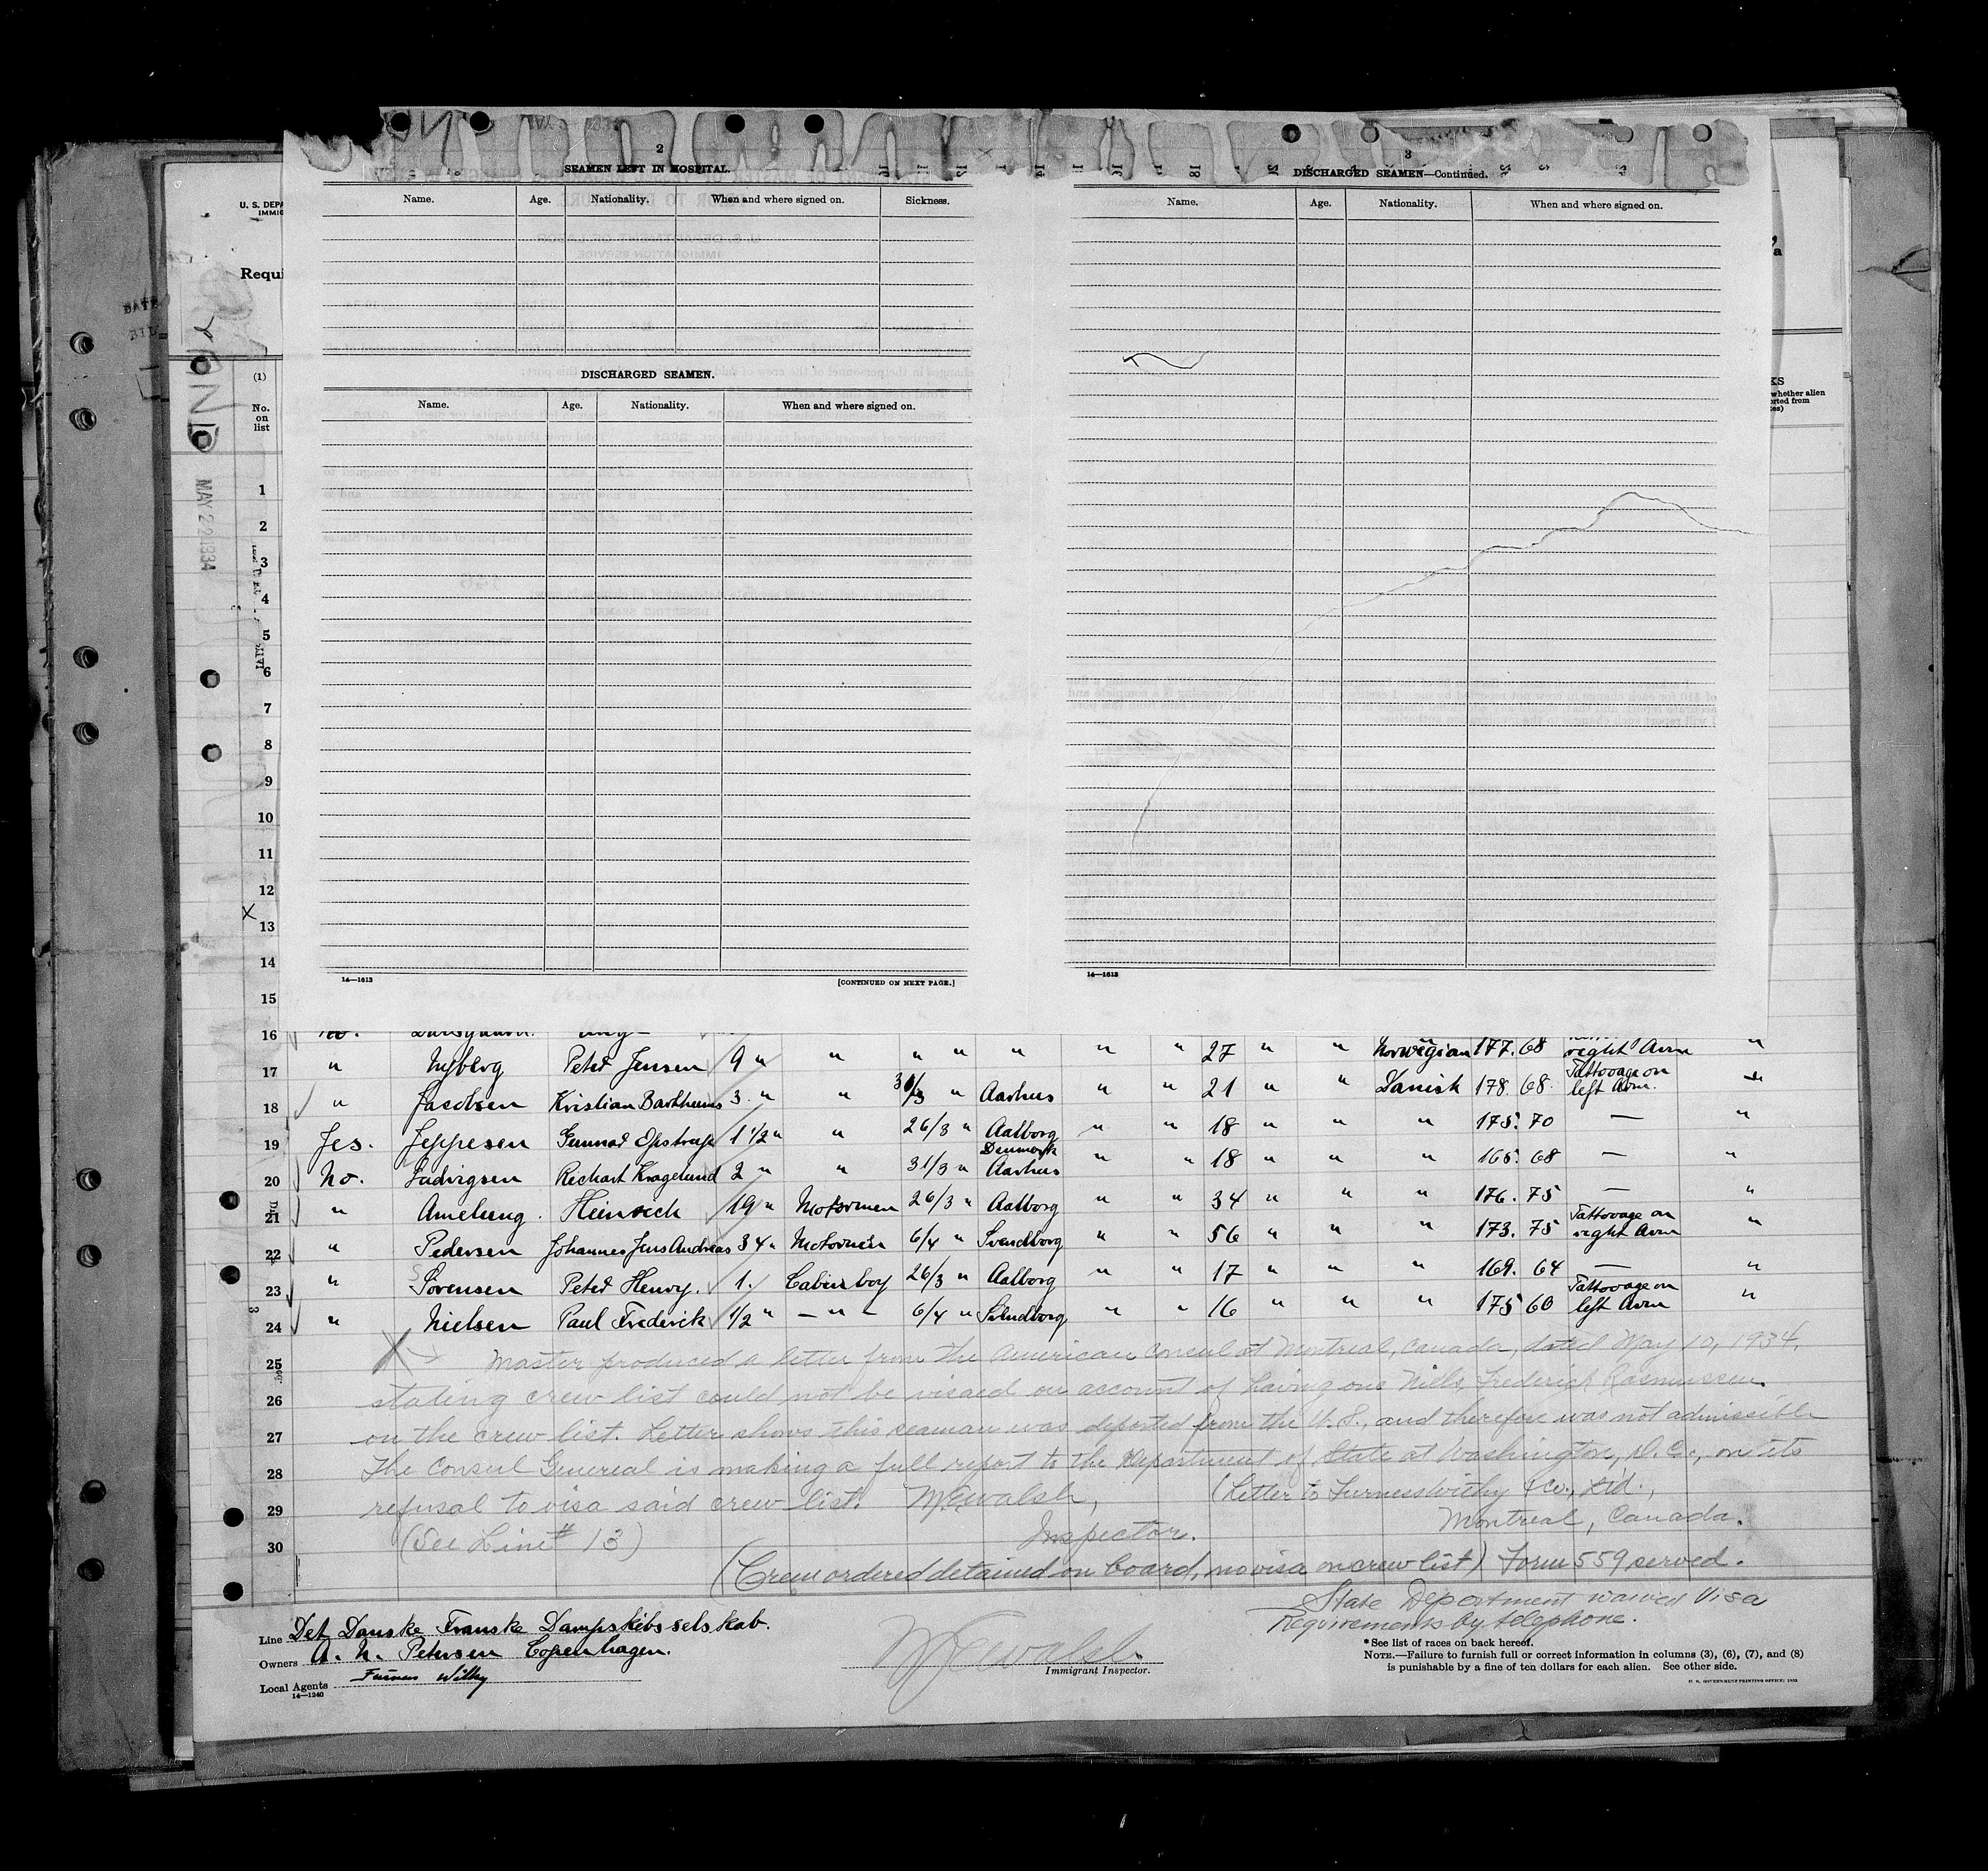 2
SEAMEN LEFT IN HOSPITAL.
Name. Age. Nationality. When and where signed on. Sickness.
DISCHARGED SEAMEN.
Name. Age. Nationality. When and where signed on.
14—1613 [CONTINUED ON NEXT PAGE.]
3
DISCHARGED SEAMEN—Continued.
Name. Age. Nationality. When and where signed on.
14—1613
U. S. DEPA
IMMIG
Requi
(1)
No.
on
list
KS
whether alien
orted from
es)
MAY 22 1934
1
2
3
4
5
6
7
8
9
10
11
12
x
13
14
15
16 No.
17 " Nyberg Peter Jensen 9 " " " " " " " 27 " " Norwegian 177. 68 right Arm "
18 " Jacobsen Kristian 3 " " 31/3 " Aarhus " " 21 " " Danish 178. 68. Tattooage on left Arm. "
19 Jes. Jeppesen Gunnar 1 1/2 " " 26/3 " Aalborg " " 18 " " " 175. 70 — "
20 No. Ludvigsen Richart Kragelund 2 " " 31/3 " Denmark Aarhus " " 18 " " " 165. 68 — "
21 " Amelung. Heinrich 19 " Motormen 26/3 " Aalborg " " 34 " " " 176. 75 — "
22 " Pedersen Johannes Jens Andreas 34 " Motormen 6/4 " Svendborg " " 56 " " " 173. 75 Tattooage on right Arm "
23 " Sorensen Peter Henry. 1. Cabin boy 26/3 " Aalborg " " 17 " " " 169. 64 — "
24 " Nielsen Paul Frederick 1/2 " — " — 6/4 " Svendborg " " 16 " " " 175 60 Tattooage on left Arm "
25 X → Master produced a letter from the American Consul at Montreal, Canada, dated May 10, 1934,
26 stating crew list could not be visaed on account of having one Nills Frederick Rasmussen
27 on the crew list. Letter shows this seaman was deported from the U.S., and therefore was not admissible
28 The Consul General is making a full report to the Department of State at Washington, D.C., on its
29 refusal to visa said crew list. M.E. Walsh, (Letter to Furness Withy & Co., Ltd.,
(See Line # 13) Inspector. Montreal, Canada.
30 (Crew ordered detained on board, no visa on crew list) Form 559 served.
State Department waived Visa
Requirements by telephone.
Line Det Danske Franske Dampskibsselskab.
Owners A. N. Petersen Copenhagen.
Local Agents Furness Withy
14—1240
M E Walsh
Immigrant Inspector.
*See list of races on back hereof.
NOTE.—Failure to furnish full or correct information in columns (3), (6), (7), and (8)
is punishable by a fine of ten dollars for each alien. See other side.
U. S. GOVERNMENT PRINTING OFFICE: 1933